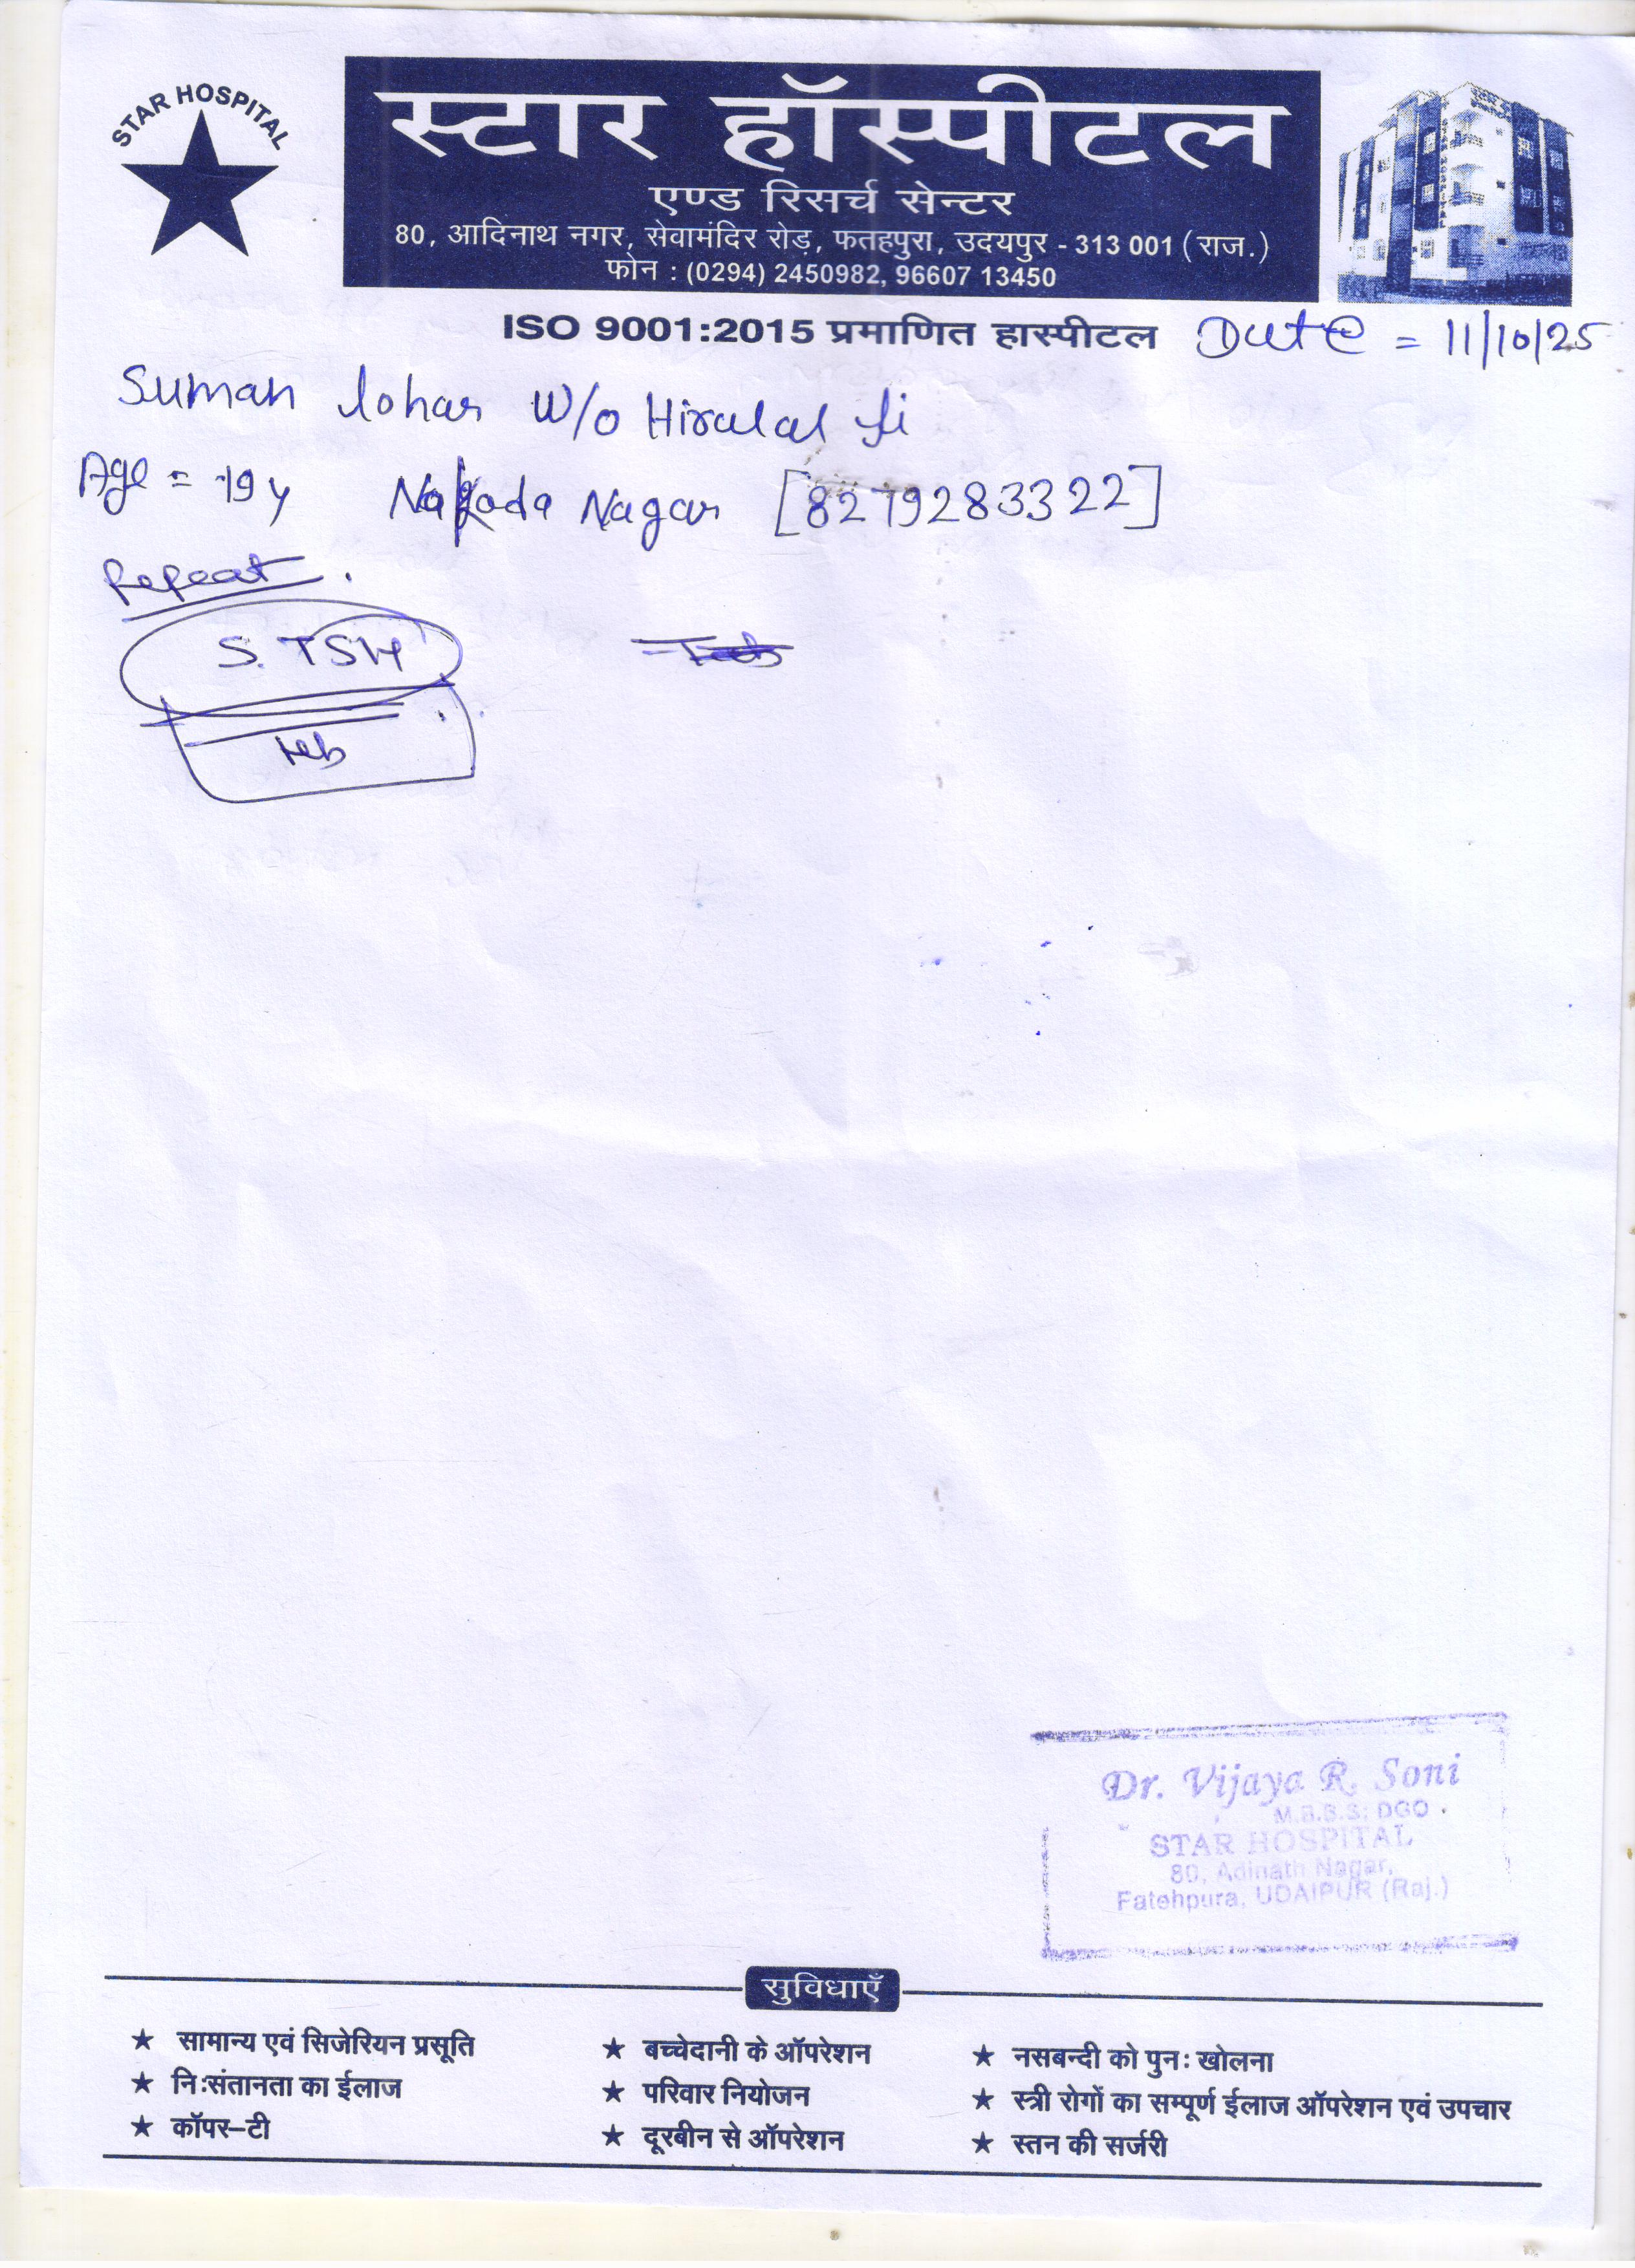 STAR HOSPITAL
स्टार हॉस्पीटल
एण्ड रिसर्च सेन्टर
80, आदिनाथ नगर, सेवामंदिर रोड़, फतहपुरा, उदयपुर - 313 001 (राज.)
फोन : (0294) 2450982, 96607 13450
ISO 9001:2015 प्रमाणित हास्पीटल Date = 11/10/25
Suman lohar W/o Hiralal Ji
Age = 19 y Nakoda Nagar [8279283322]
Repeat.
S. TSH
Hb
Dr. Vijaya R. Soni
M.B.B.S; DGO
STAR HOSPITAL
80, Adinath Nagar,
Fatehpura, UDAIPUR (Raj.)
सुविधाएँ
★ सामान्य एवं सिजेरियन प्रसूति ★ बच्चेदानी के ऑपरेशन ★ नसबन्दी को पुनः खोलना
★ निःसंतानता का ईलाज ★ परिवार नियोजन ★ स्त्री रोगों का सम्पूर्ण ईलाज ऑपरेशन एवं उपचार
★ कॉपर–टी ★ दूरबीन से ऑपरेशन ★ स्तन की सर्जरी